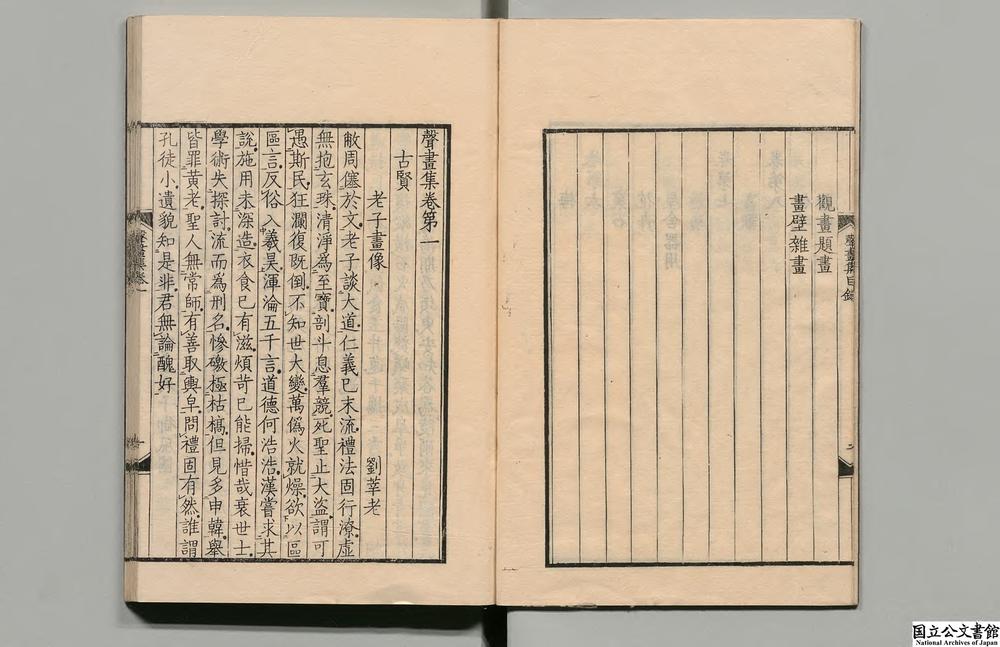 觀畫題畫
畫壁雜畫
聲畫集目錄
聲畫集卷第一
古賢
老子畫像 劉莘老
敝周僿於文老子談大道仁義已末流禮法固行潦虛
無抱玄珠清淨為至寶剖斗息羣競死聖止大盜謂可
愚斯民狂瀾復既倒不知世大變萬僞火就燥欲以區
區言反俗入羲昊渾淪五千言道德何浩浩漢嘗求其
說施用未深造衣食已有滋煩苛已能掃惜哉衰世士
學術失探討流而為刑名慘礉極枯槁但見多申韓舉
皆罪黃老聖人無常師有善取輿皁問禮固有然誰謂
孔徒小遺貌知是非君無論醜好
聲畫集卷一
国立公文書館
National Archives of Japan